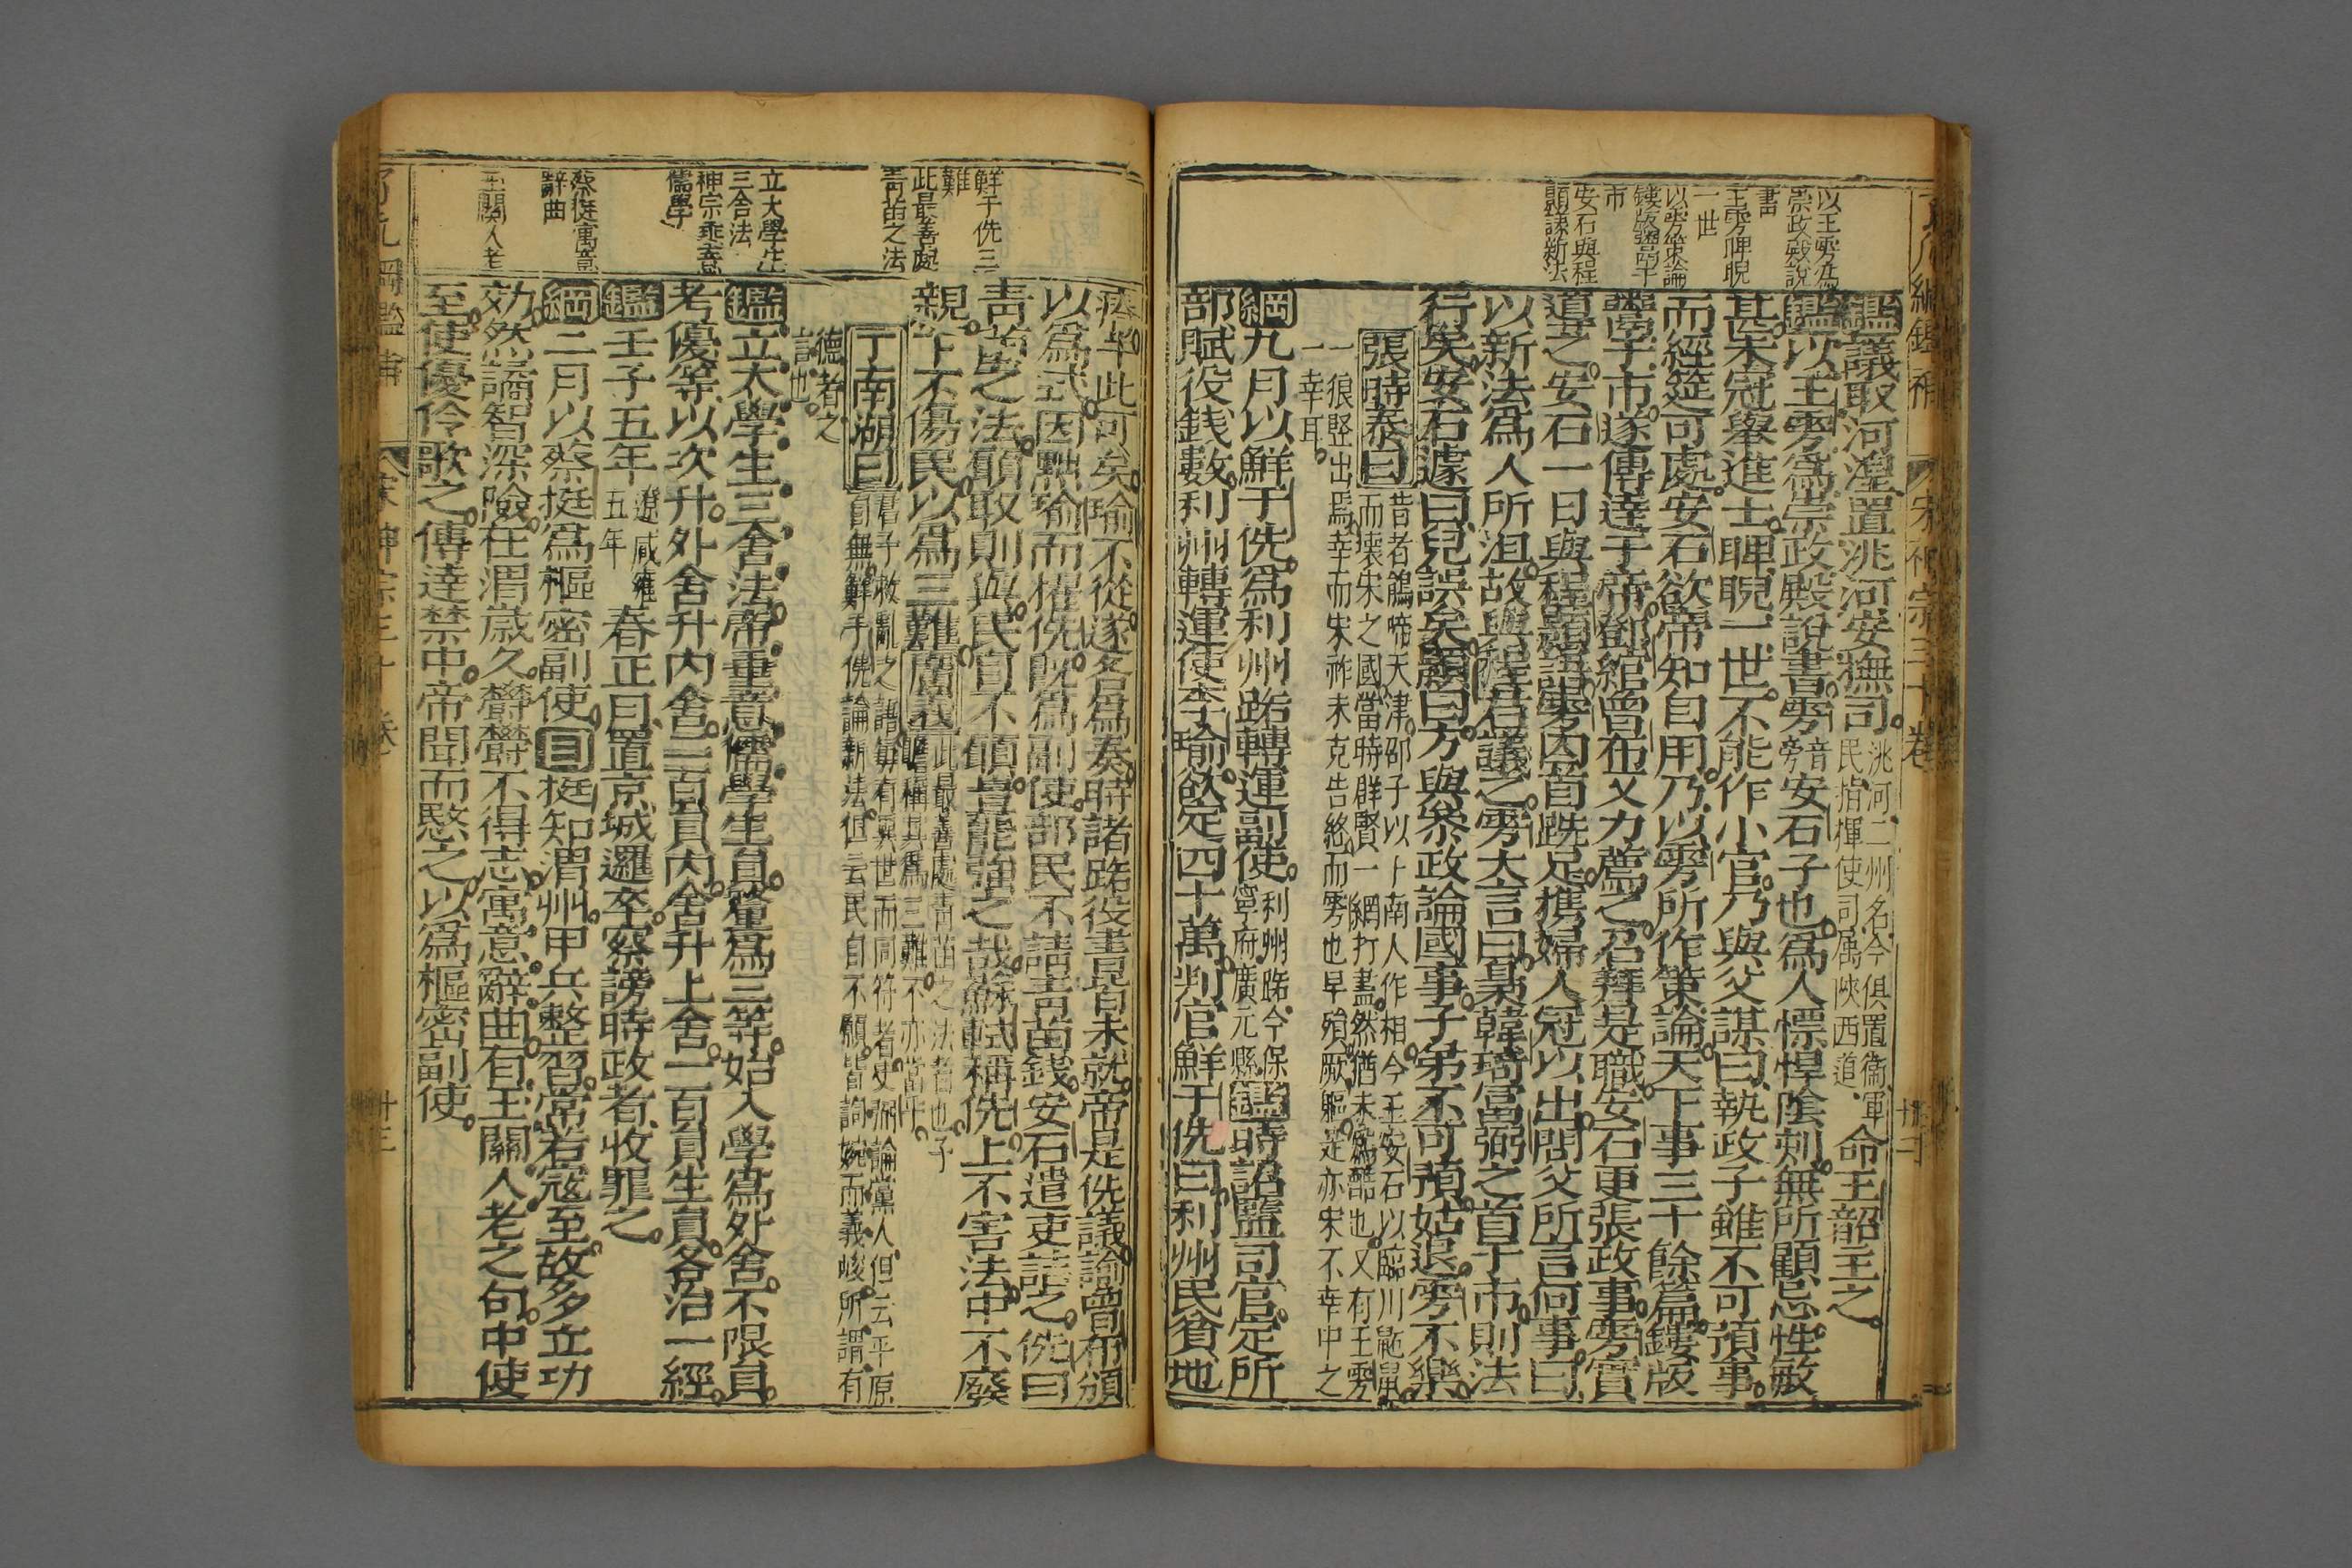 以王雱為
崇政殿說
書
王雱睥睨
一世
以雱策論
鏤版鬻于
市
安石與程
顥議新法
鑑議取河湟置洮河安撫司。洮河二州名今俱置衞軍
民指揮使司属陝西道命王韶主之。
鑑以王雱為崇政殿說書。雱音
旁安石子也。為人慓悍陰刻。無所顧忌。性敏
甚。未冠舉進士。睥睨一世。不能作小官。乃與父謀曰。執政子雖不可預事。
而經筵可處。安石欲帝知自用。乃以雱所作策論天下事三十餘篇。鏤版
鬻于市。遂傳達于帝。鄧綰曾布又力薦之。召拜是職。安石更張政事。雱實
導之。安石一日與程顥語。雱囚首跣足。攜婦人冠以出。問父所言何事。曰
以新法為人所沮。故與程君議之。雱大言曰。梟韓琦富弼之首于市。則法
行矣。安石遽曰。兒誤矣。顥曰。方與叅政論國事。子弟不可預。姑退。雱不樂。
張時泰曰昔者鵑啼天津。邵子以上南人作相。今王安石以臨川鼷鼠
而壞宋之國。當時群賢一網打盡。然猶未為酷也。又有王雱
一狠豎出焉。幸而宋祚未克告終。而雱也早殞厥軀。是亦宋不幸中之
一幸耳。
綱九月以鮮于侁為利州路轉運副使。利州路今保
寧府廣元縣鑑時詔監司官定所
部賦役錢數。利州轉運使李瑜欲定四十萬。判官鮮于侁曰。利州民貧地
鮮于侁三
難
此最善處
青苗之法
立大學生
三舍法
神宗乖意
儒學
蔡挺寓意
辭曲
玉關人老
瘠。半此可矣。瑜不從。遂各為奏。時諸路役書皆未就。帝是侁議。諭曾布頒
以為式。因黜瑜而擢侁。既為副使。部民不請青苗錢。安石遣吏詰之。侁曰
青苗之法。願取則與。民自不願。豈能強之哉。蘇軾稱侁上不害法。中不廢
親。下不傷民。以為三難。廣義此最善處青苗之法者也。子
瞻稱其為三難。不亦當乎。
丁南湖曰君子救亂之語。每有異世而同符者。史弼論黨人。但云平原
自無。鮮于侁論新法。但云民自不願。皆詞婉而義峻。所謂有
德者之
言也。
鑑立太學生三舍法。帝垂意儒學。生員釐為三等。始入學為外舍。不限員。
考優等。以次升外舍升內舍二百員。內舍升上舍一百員。生員各治一經。
鑑壬子五年遼咸雍
五年春正月置京城邏卒。察謗時政者。收罪之。
綱二月以蔡挺為樞密副使。目挺知渭州。甲兵整習。常若寇至。故多立功
効。然譎智深險。在渭歲久。欝欝不得志。寓意辭曲。有玉關人老之句。中使
至。使優伶歌之。傳達禁中。帝聞而愍之。以為樞密副使。